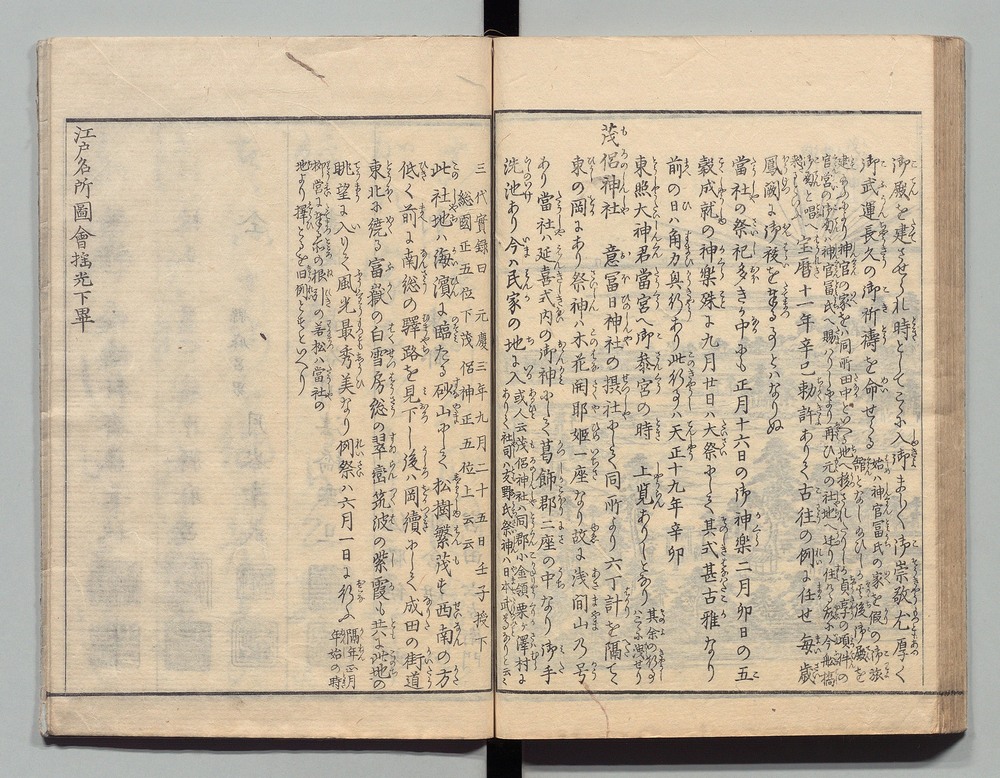 御殿を建させられ時としてこゝに入御ましまし御崇敬尤厚く
御武運長久の御祈禱を命せらる
始ハ神官冨氏の家を假の御旅
館となしめひしか其後御殿を
建
神官の家をハ同所田中といへる地へ移され
貞享の頃件の
官宮の御殿を神官冨氏へ賜
再ひ元の社地へ迁り住
今船橋
御殿と唱へ
宝暦十一年辛巳勅許ありて古往の例に任せ毎歳
鳳闕に御祓を奉るとハなりぬ
當社の祭祀多きか中にも正月十六日の御神楽二月卯日の五
穀成就の神楽殊に九月廿日ハ大祭にして其式甚古雅なり
前の日ハ角力興行あり此行事ハ天正十九年辛卯
東照大神君當宮へ御参宮の時 上覧ありしとなり
其余の行事
こゝに洩せり
茂侶神社 意冨日神社の摂社にして同所より六丁計を隔て
東の岡にあり祭神ハ木花開耶姫一座なり故に浅間山乃号
あり當社ハ延喜式内の御神にして葛飾郡二座の中なり御手
洗池あり今ハ民家の地に入
或人云茂侶神社ハ同郡小金領栗ヶ澤村に
ありて社司ハ友野氏祭神ハ日本武尊なりと云々
三代實録曰元慶三年九月二十五日壬子授下
総國正五位下茂侶神正五位上云云
此社地ハ海濱に臨たる砂山にして松樹繁茂せり西南の方
低く前に南総の驛路を見下し後ハ岡續にして成田の街道
東北に繞る富嶽の白雪房総の翠巒筑波の紫霞も共に此地の
眺望に入りて風光最秀美なり例祭ハ六月一日に行ふ
隔年正月
年始の時
柳営に奉る根引の若松ハ當社の
地より擇とるを旧例とすといへり
江戸名所圖會揺光下畢